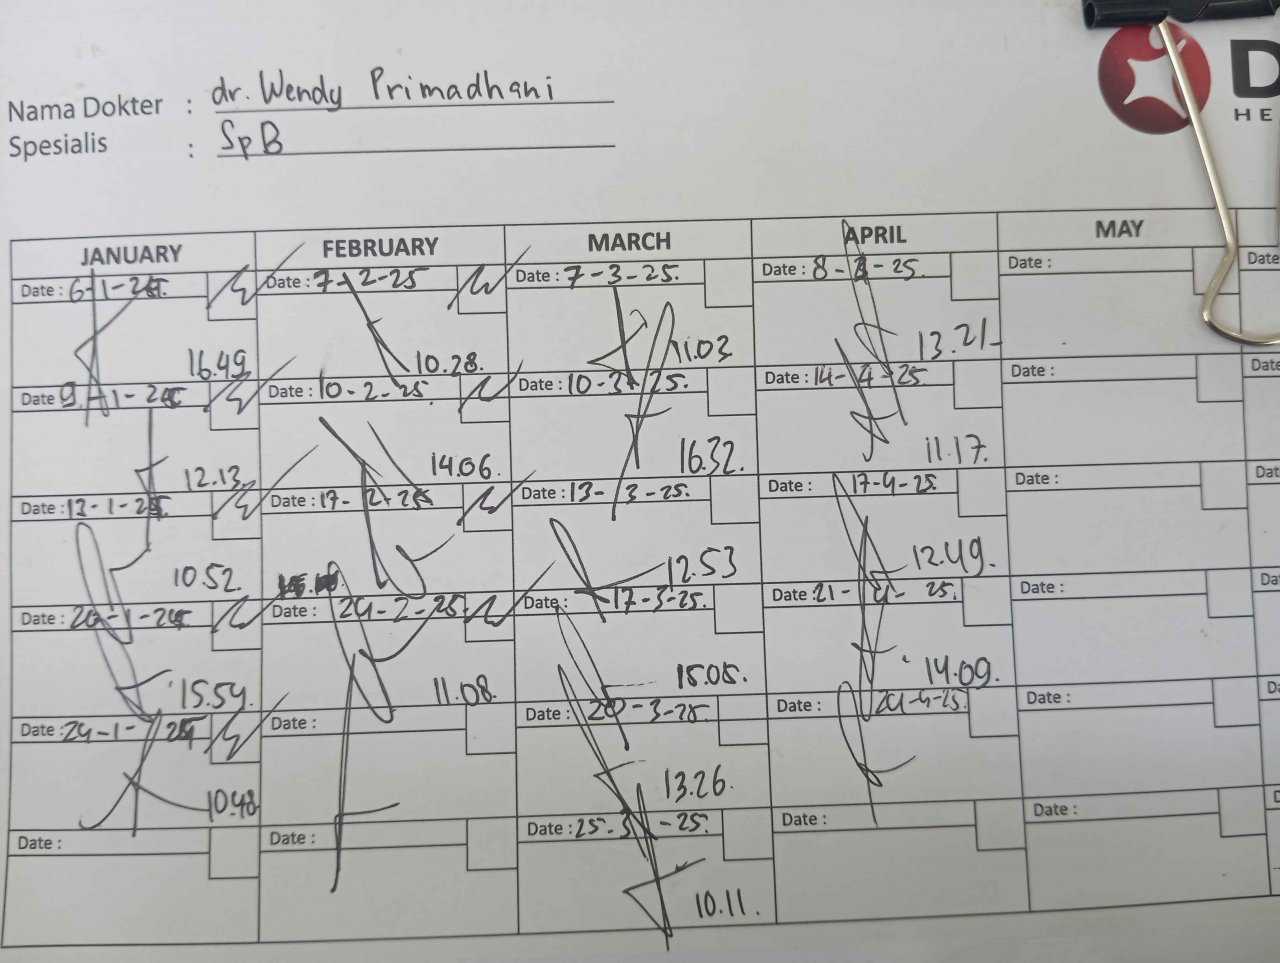 Nama Dokter : dr. Wendy Primadhani
Spesialis : SpB
D
HE
JANUARY FEBRUARY MARCH APRIL MAY
Date : 6-1-25. Date : 7-2-25 Date : 7-3-25. Date : 8-4-25. Date : Date
16.49 10.28. 11.03 13.21
Date 9-1-25 Date : 10-2-25. Date : 10-3-25. Date : 14-4-25. Date : Date
12.13. 14.06. 16.32. 11.17.
Date : 13-1-25. Date : 17-2-25 Date : 13-3-25. Date : 17-4-25. Date : Dat
10.52. 12.53 12.49.
Date : 20-1-25. Date : 24-2-25 Date : 17-3-25. Date 21-4-25. Date : Da
15.59. 11.08. 15.05. 14.09.
Date : 24-1-25 Date : Date : 20-3-25. Date : 24-4-25. Date : D
10.48 13.26.
Date : Date : Date : 25-3-25. Date : Date : D
10.11.